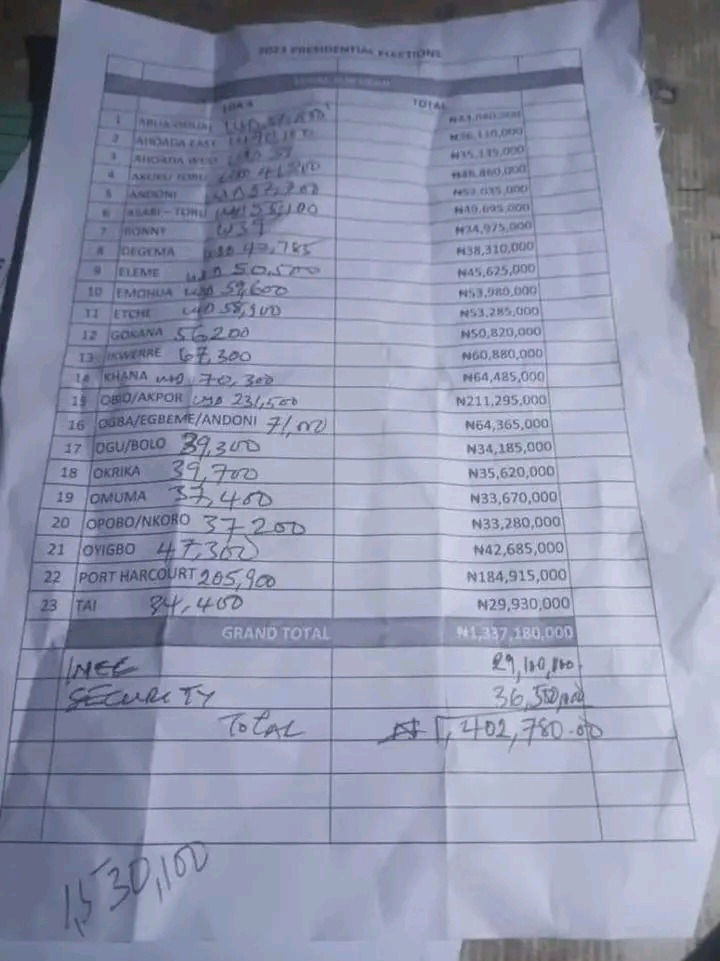 2023 PRESIDENTIAL ELECTIONS
LGA's TOTAL
1 ABUA/ODUAL
2 AHOADA EAST ₦36,110,000
3 AHOADA WEST ₦35,135,000
4 AKUKU TORU ₦48,860,000
5 ANDONI USD 57,700 ₦52,035,000
6 ASARI - TORU USD 55,100 ₦49,695,000
7 BONNY ₦34,975,000
8 DEGEMA USD 42,785 ₦38,310,000
9 ELEME USD 50,500 ₦45,625,000
10 EMOHUA USD 59,600 ₦53,980,000
11 ETCHE USD 58,900 ₦53,285,000
12 GOKANA 56200 ₦50,820,000
13 IKWERRE 67,300 ₦60,880,000
14 KHANA USD 70,300 ₦64,485,000
15 OBIO/AKPOR USD 231,500 ₦211,295,000
16 OGBA/EGBEME/ANDONI ₦64,365,000
17 OGU/BOLO 39,300 ₦34,185,000
18 OKRIKA 39,700 ₦35,620,000
19 OMUMA 37,400 ₦33,670,000
20 OPOBO/NKORO 37200 ₦33,280,000
21 OYIGBO 47,300 ₦42,685,000
22 PORT HARCOURT 205,900 ₦184,915,000
23 TAI 34,400 ₦29,930,000
GRAND TOTAL ₦1,337,180,000
INEC 29,100,000
SECURITY 36,500,000
TOTAL ₦1,402,780.00
1,530,100